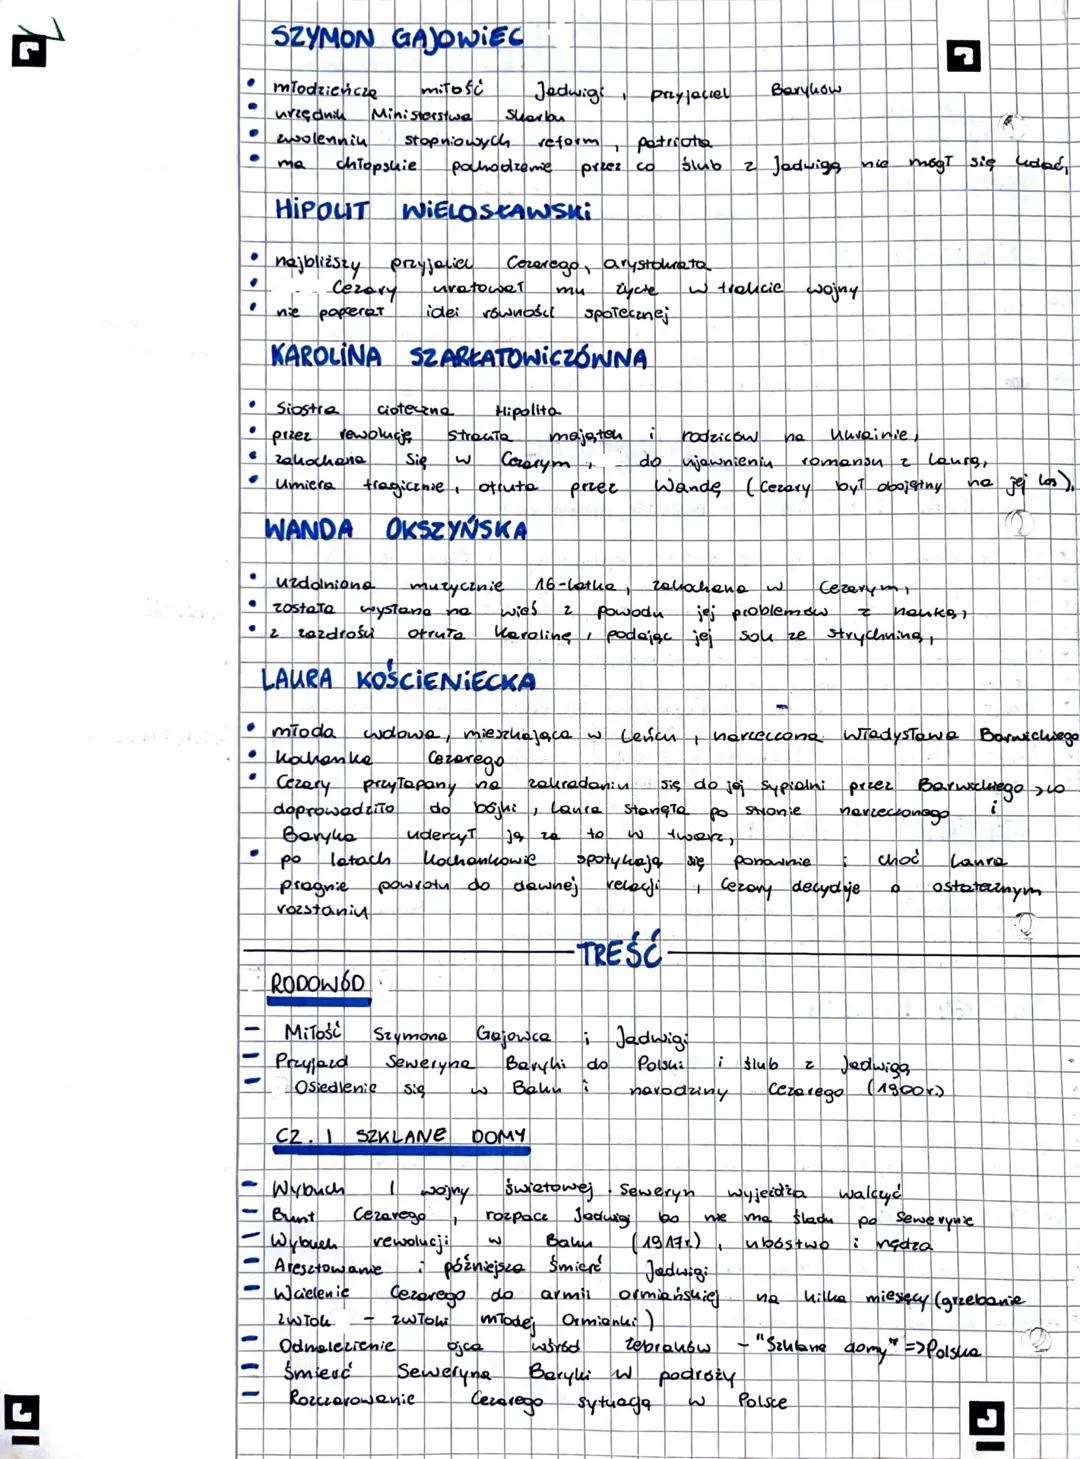 SZYMON GAJOWIEC
• młodzieńcza miłość Jadwigi, przyjaciel Baryków
• urzędnik Ministerstwa Skarbu
• zwolennik stopniowych reform, patriota
• ma chłopskie pochodzenie przez co ślub z Jadwigą nie mógł się udać,
HIPOLIT WIELOSŁAWSKI
• najbliższy przyjaciel Cezarego, arystokrata
• Cezary uratował mu życie w trakcie wojny
• nie popierał idei równości społecznej
KAROLINA SZARŁATOWICZÓWNA
• Siostra cioteczna Hipolita
• przez rewolucję straciła majątek i rodziców na Ukrainie,
• zakochana się w Cezarym, do ujawnieniu romansu z Laurą,
• Umiera tragicznie, otruta przez Wandę (Cezary był obojętny na jej los),
WANDA OKSZYŃSKA
• uzdolniona muzycznie 16-latka, zakochana w Cezarym,
• została wysłana na wieś z powodu jej problemów z nauką,
• z zazdrości otruła Karolinę, podając jej sok ze strychniną,
LAURA KOŚCIENIECKA
• młoda wdowa, mieszkająca w Leńcu, narzeczona Władysława Barwickiego
• kochanka Cezarego
• Cezary przyłapany na zakradaniu się do jej sypialni przez Barwickiego, co
doprowadziło do bójki, Laura stanęła po stronie narzeczonego i
Baryka uderzył ją za to w twarz,
• po latach kochankowie spotykają się ponownie i choć Laura
pragnie powrotu do dawnej relacji, Cezary decyduje o ostatecznym
rozstaniu
TREŚĆ
RODOWÓD
- Miłość Szymona Gajowca i Jadwigi
- Przyjazd Seweryna Baryki do Polski i ślub z Jadwigą
- Osiedlenie się w Baku i narodziny Cezarego (1900r.)
CZ. I SZKLANE DOMY
- Wybuch I wojny światowej. Seweryn wyjeżdża walczyć
- Bunt Cezarego, rozpacz Jadwigi bo nie ma śladu po Sewerynie
- Wybuch rewolucji w Baku (1917r.), ubóstwo i nędza
- Aresztowanie i późniejsza śmierć Jadwigi
- Wcielenie Cezarego do armii ormiańskiej na kilka miesięcy (grzebanie
zwłok - zwłoki młodej Ormianki)
- Odnalezienie ojca wśród żebraków - "Szklane domy" => Polska
- Śmierć Seweryna Baryki w podróży
- Rozczarowanie Cezarego sytuacją w Polsce